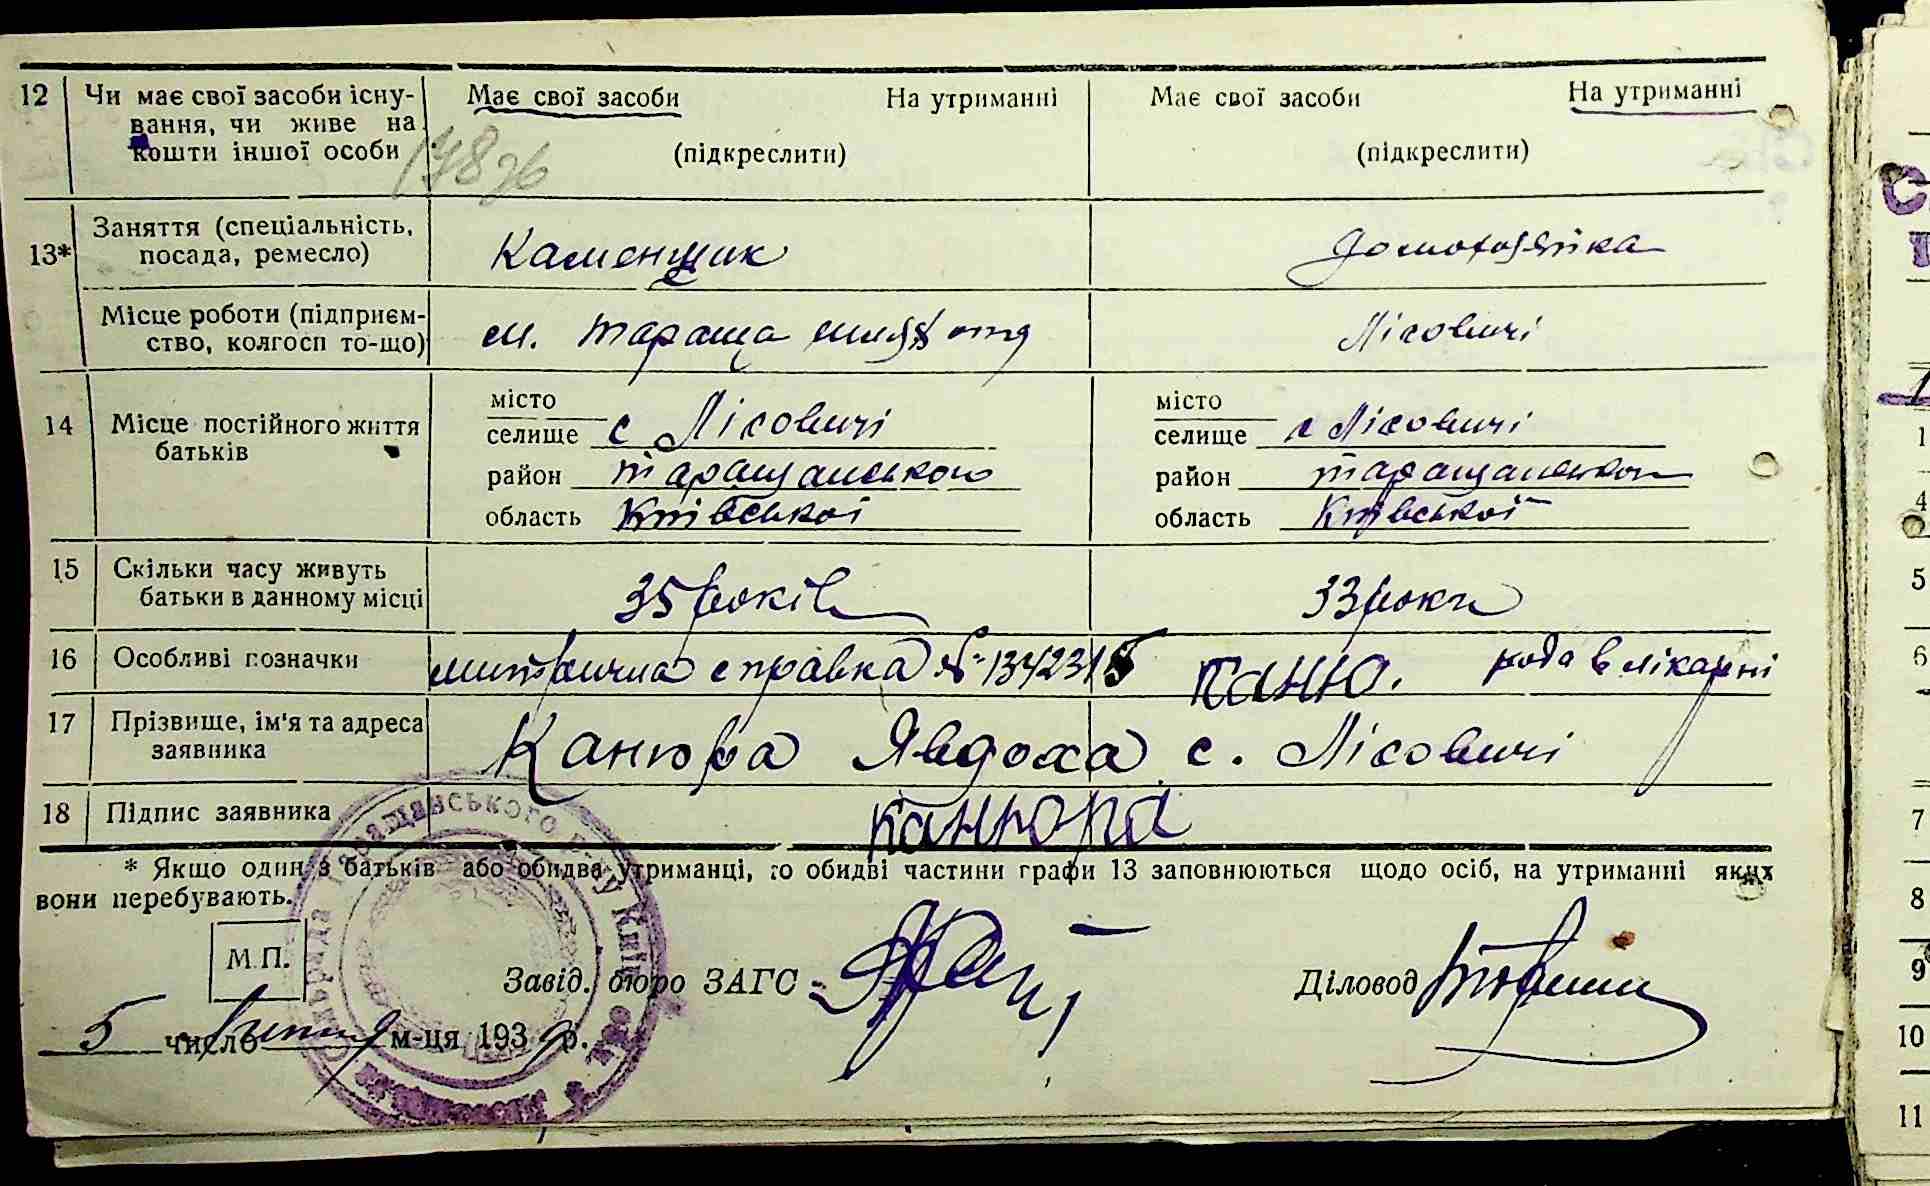 12 Чи має свої засоби існу- Має свої засоби На утриманні Має свої засоби На утриманні
вання, чи живе на
кошти іншої особи (підкреслити) (підкреслити)
13* Заняття (спеціальність, посада, ремесло) Каменщик домохозяйка
Місце роботи (підприєм-
ство, колгосп то-що) м. Тараща Лісовичі
14 Місце постійного життя
батьків
місто місто
селище с Лісовичі селище с Лісовичі
район Таращанського район Таращанського
область Київської область Київської
15 Скільки часу живуть
батьки в данному місці 35 років 33 роки
16 Особливі позначки справка в лікарні
17 Прізвище, ім'я та адреса
заявника Канюра Явдоха с. Лісовичі
18 Підпис заявника Канюра
* Якщо один з батьків або обидва утриманці, то обидві частини графи 13 заповнюються щодо осіб, на утриманні яких
вони перебувають.
М.П.
Завід. бюро ЗАГС Діловод
5 число липня м-ця 1939 р.
1
4
5
6
7
8
9
10
11